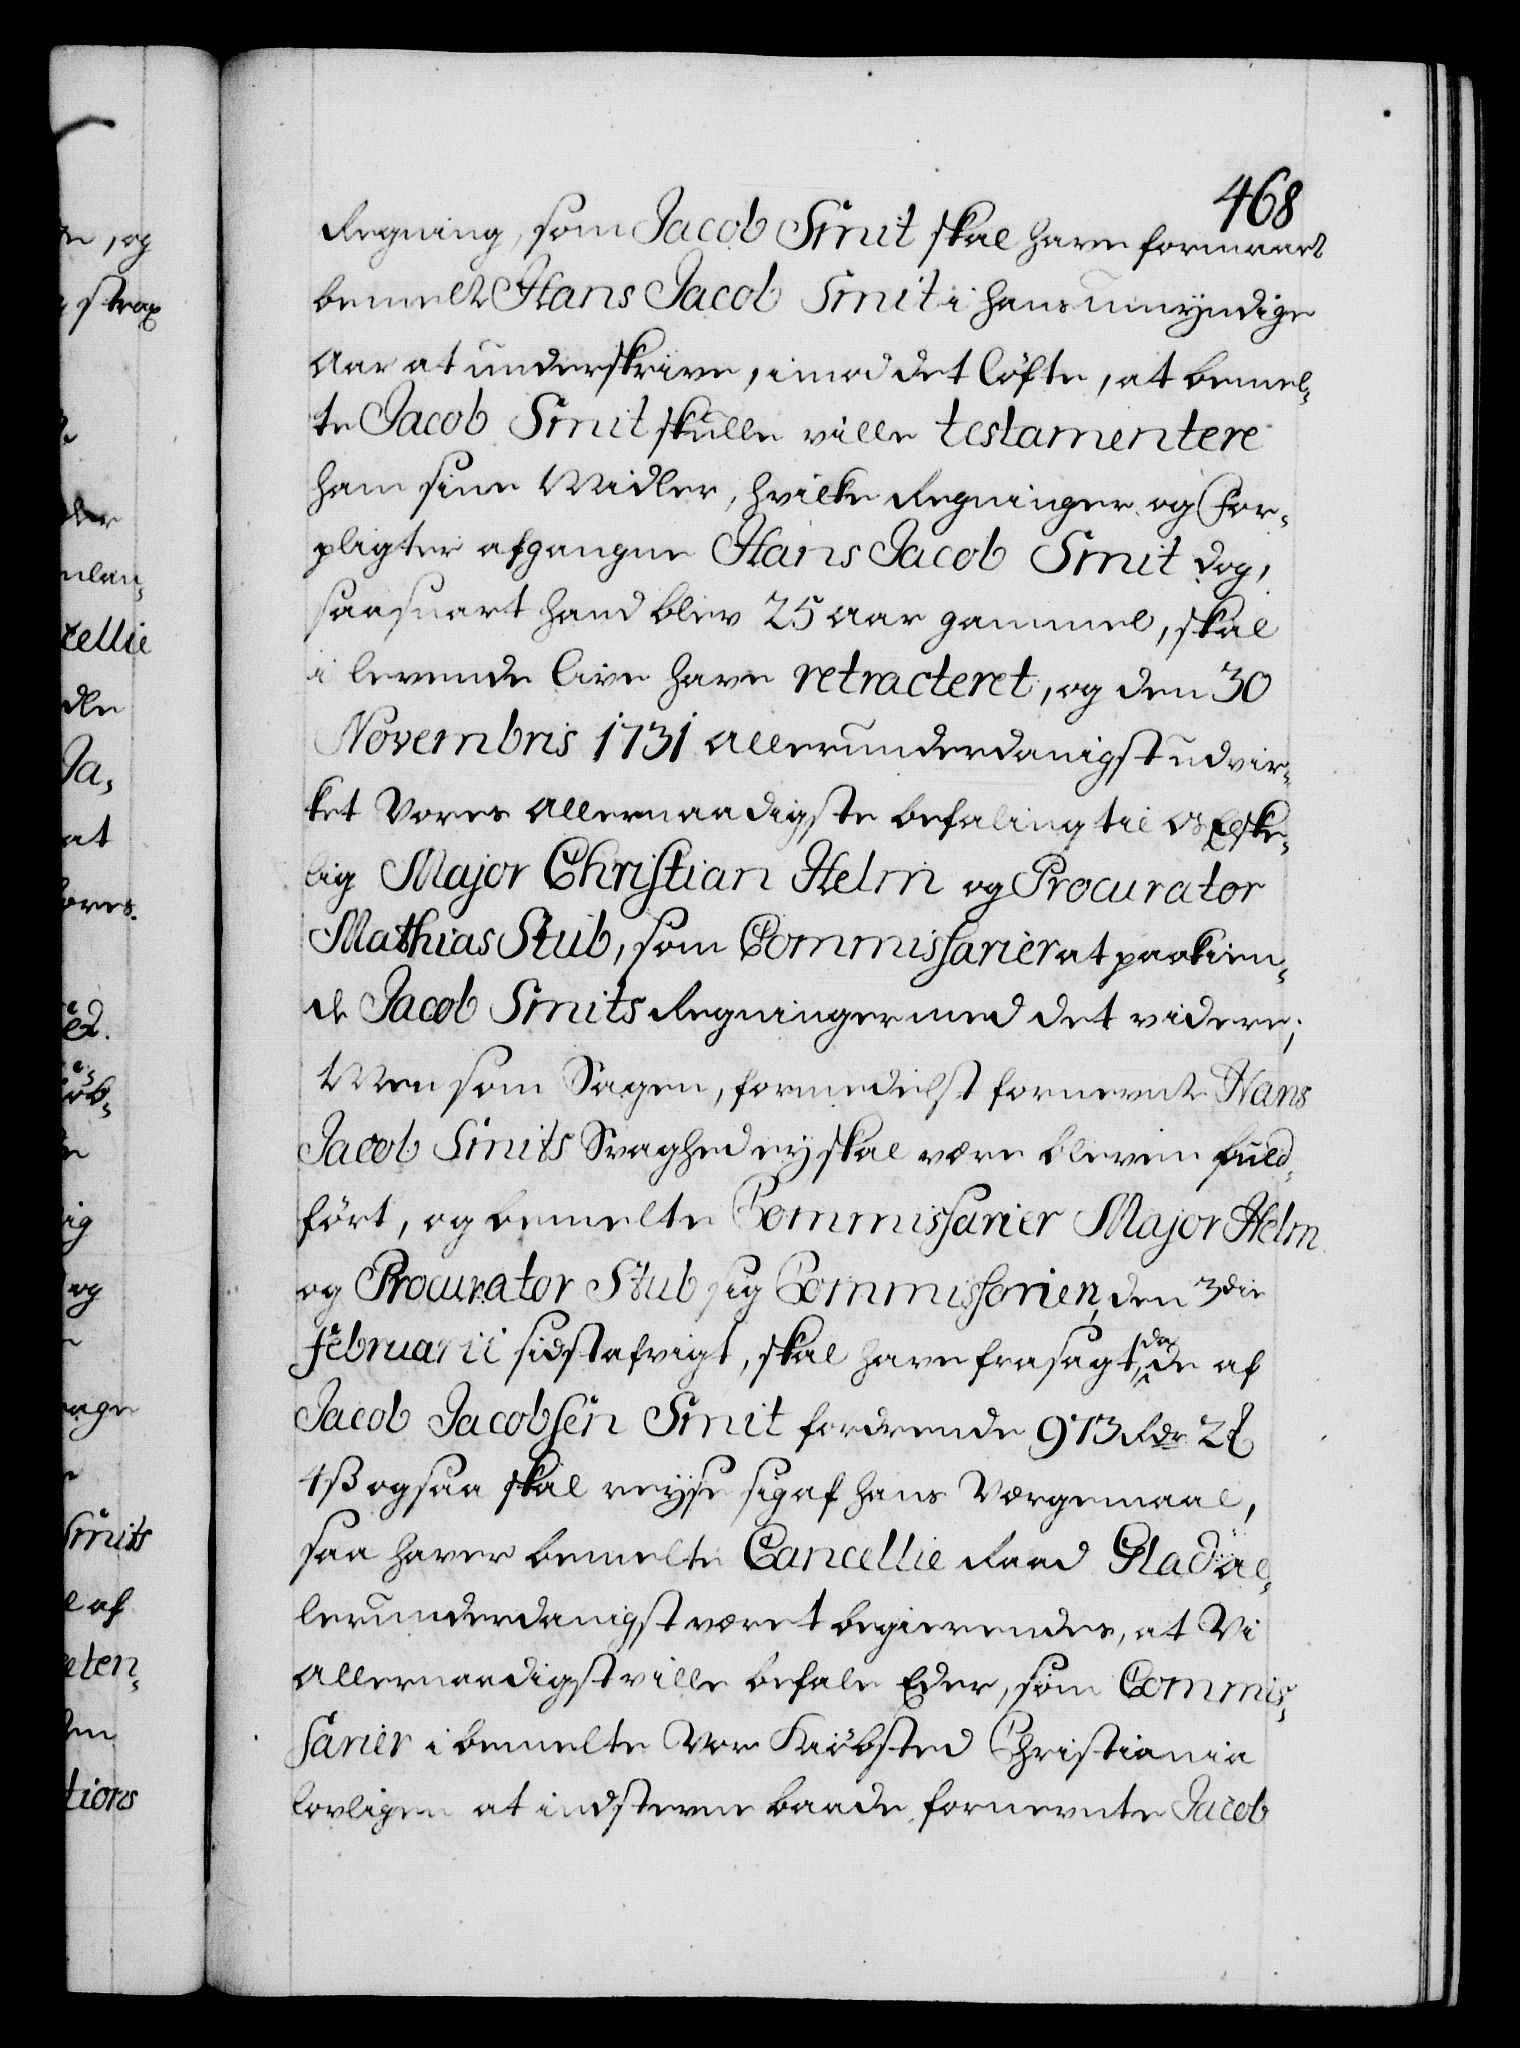 468
Regning, som Jacob Smit skal have formaaet
bemelt Hans Jacob Smit i hans umyndige
Aar at underskrive, imod det löfte, at bemel-
te Jacob Smit skulle ville testamentere
ham sine Midler, hvilke Regninger og For-
pligter afgangne Hans Jacob Smit dog,
saasnart hand blev 25 Aar gammel, skal
i levende live have retracteret, og den 30
Novembris 1731 allerunderdanigst udvir-
ket Vores allernaadigste befaling til Os Elske-
lig Major Christian Helm og Procurator
Mathias Stub, som Commissarier at paakien-
de Jacob Smits Regninger med det videre;
Men som Sagen, formedelst fornevnte Hans
Jacob Smits Svaghed ey skal være bleven fuld-
fört, og bemelte Commissarier Major Helm
og Procurator Stub sig Commissorien, den 3die
Februarii sidstafvigt, skal have frasagt, da de af
Jacob Jacobsen Smit fordrende 973 Rdr. 2 ꝶ
4 ß ogsaa skal reyse sig af hans Værgemaal,
saa haver bemelte Cancellie Raad Glad al-
lerunderdanigst været begierendes, at Vi
allernaadigst ville befale Eder, som Commis-
sarier i bemelte Vor Kiöbsted Christiania
lovligen at indstevne baade fornevnte Jacob